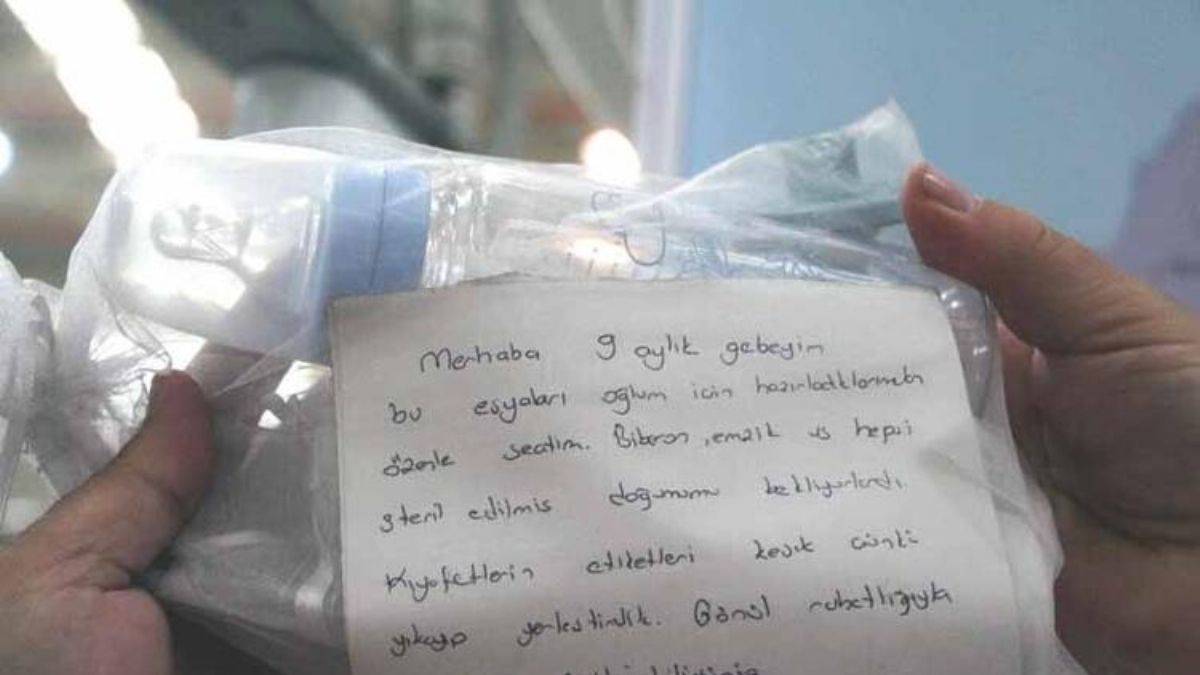 Merhaba 9 aylık gebeyim
bu eşyaları oğlum için hazırladıklarımdan
özenle seçtim. Biberon, emzik vs hepsi
steril edilmiş doğumumu bekliyorlardı.
Kıyafetlerin etiketleri kesik çünkü
yıkayıp yerleştirdik. Gönül rahatlığıyla